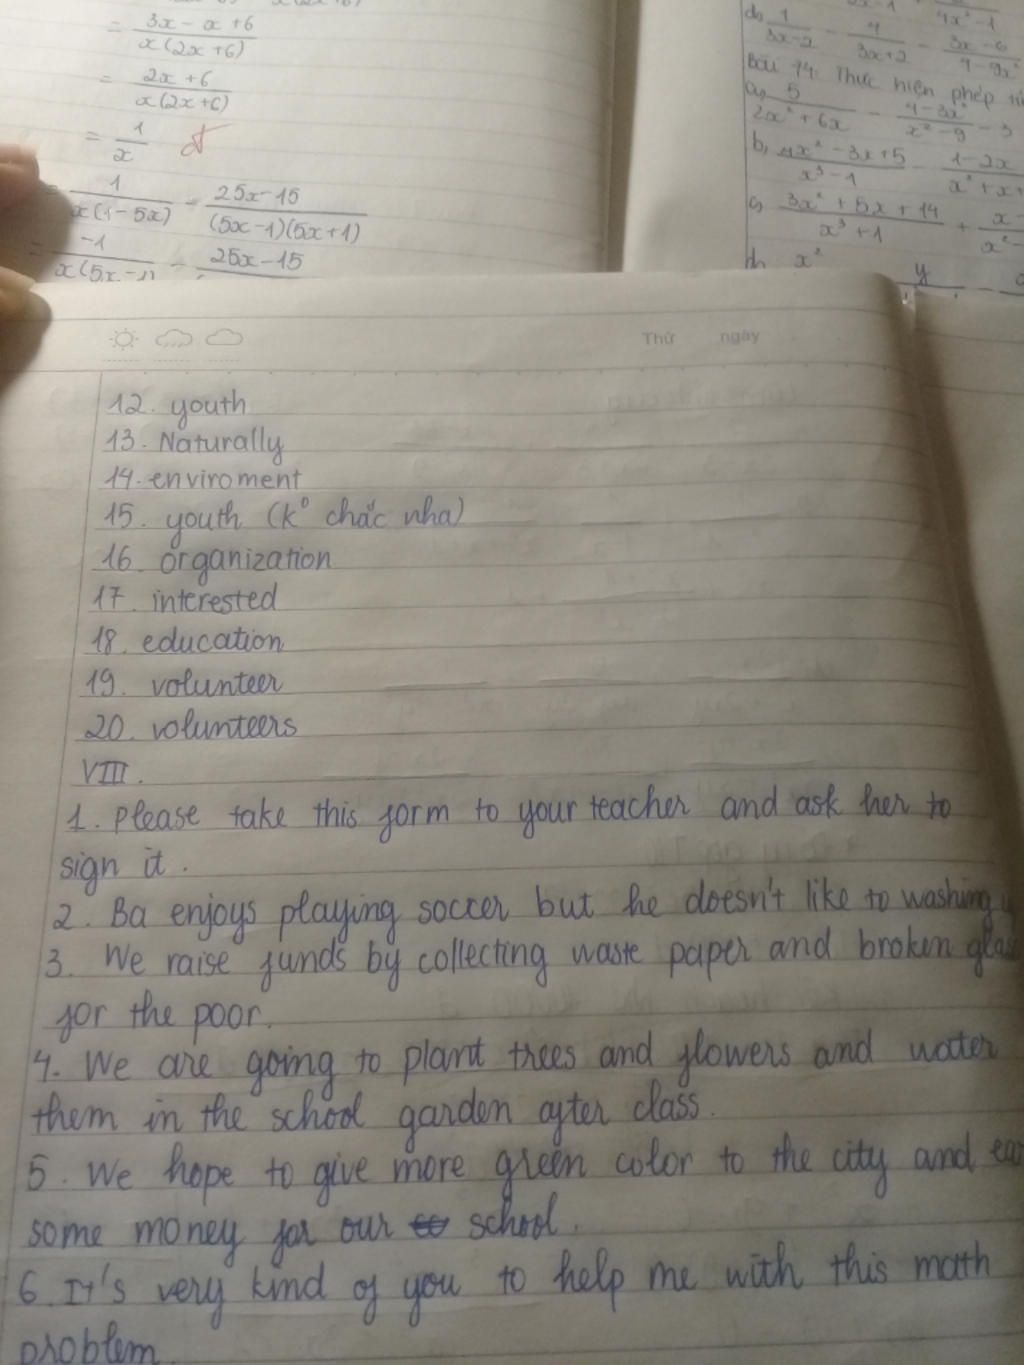 = 3x - x + 6 / x(2x+6)
= 2x + 6 / x(2x+6)
= 1 / x
1 / x(1-5x) - 25x-15 / (5x-1)(5x+1)
= -1 / x(5x-1) - 25x-15
d, 1 / 3x-2 - 4 / 3x+2 - 3x-6 / 4-9x²
Bài 14: Thực hiện phép
a, 5 / 2x²+6x - 4-3x² / x²-9 - 3
b, 4x²-3x+5 / x³-1 - 1-2x / x²+x+
c, 3x²+5x+14 / x³+1 + x- / x²-
d, x² y
Thứ ngày
12. youth
13. Naturally
14. enviroment
15. youth (k° chắc nha)
16. organization
17. interested
18. education
19. volunteer
20. volunteers
VIII.
1. please take this form to your teacher and ask her to
sign it.
2. Ba enjoys playing soccer but he doesn't like to washing
3. We raise funds by collecting waste paper and broken
for the poor.
4. We are going to plant trees and flowers and water
them in the school garden after class.
5. We hope to give more green color to the city and
some money for our school.
6. It's very kind of you to help me with this math
problem.